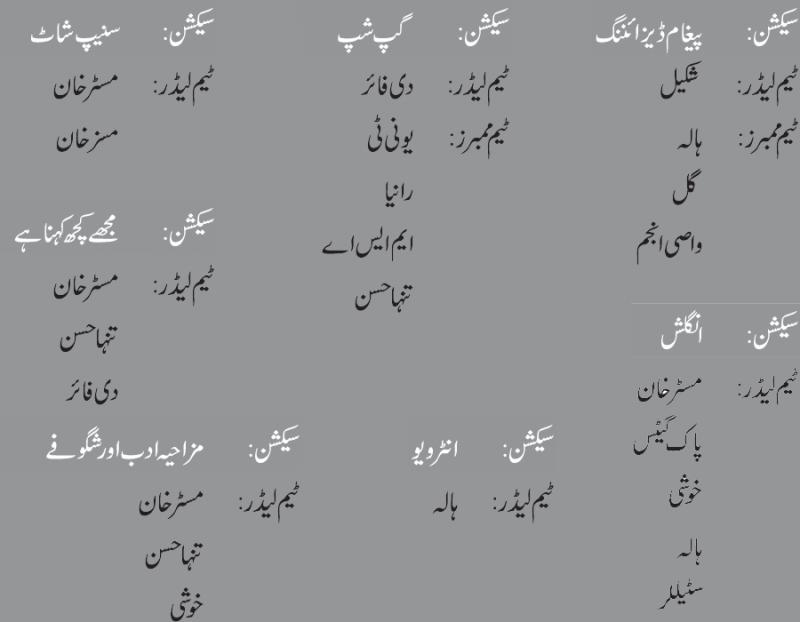 سیکشن: پیغام ڈیزائننگ
ٹیم لیڈر: شکیل
ٹیم ممبرز: ہالہ
گل
واصی انجم
سیکشن: گپ شپ
ٹیم لیڈر: دی فائر
ٹیم ممبرز: یو نی ٹی
رانیا
ایم ایس اے
تنہا حسن
سیکشن: سنیپ شاٹ
ٹیم لیڈر: مسٹر خان
مسز خان
سیکشن: مجھے کچھ کہنا ہے
ٹیم لیڈر: مسٹر خان
تنہا حسن
دی فائر
سیکشن: انگلش
ٹیم لیڈر: مسٹر خان
پاک گیٹس
خوشی
ہالہ
سٹیلر
سیکشن: انٹرویو
ٹیم لیڈر: ہالہ
سیکشن: مزاحیہ ادب اور شگوفے
ٹیم لیڈر: مسٹر خان
تنہا حسن
خوشی